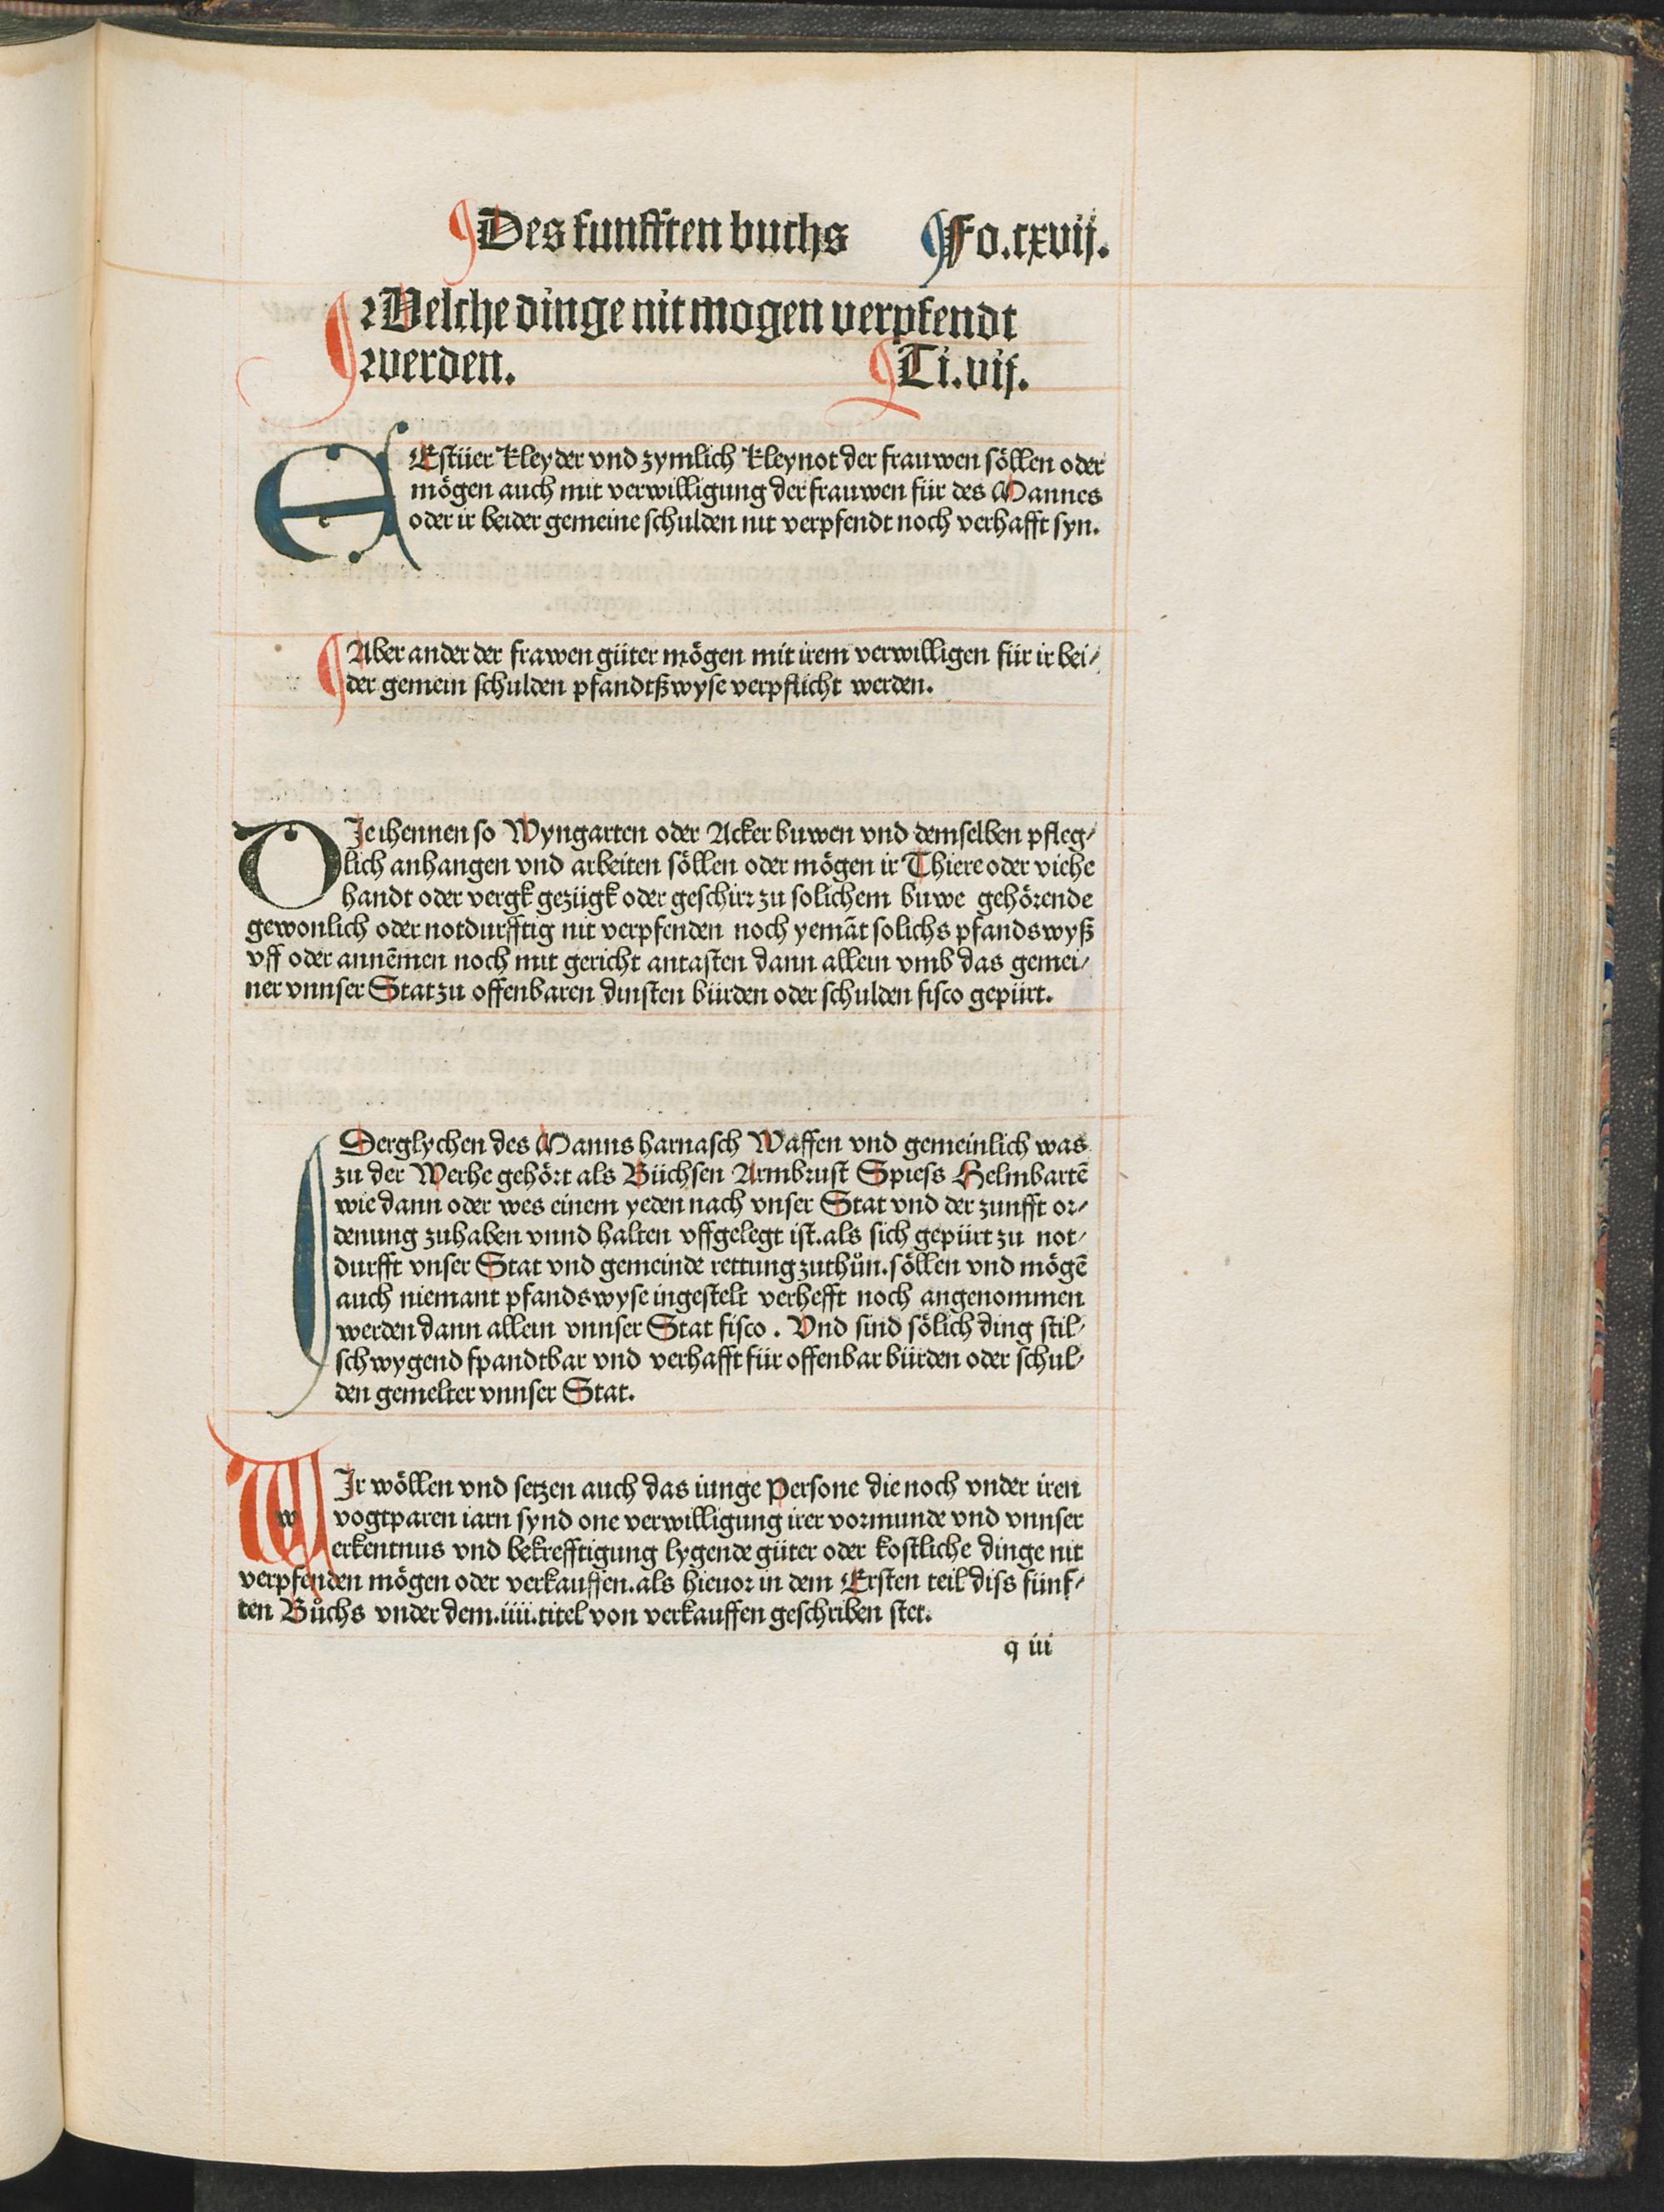 Des funfften buchs Fo.cxvij.
Welche dinge nit mogen verpfendt
werden. Ti.vij.
EEstüer kleyder vnd zymlich kleynot der frauwen söllen oder
mögen auch mit verwilligung der frauwen für des Mannes
oder ir beider gemeine schulden nit verpfendt noch verhafft syn.
Aber ander der frawen güter mögen mit irem verwilligen für ir bei⸗
der gemein schulden pfandtßwyse verpflicht werden.
DJe ihennen so Wyngarten oder Acker buwen vnd demselben pfleg⸗
lich anhangen vnd arbeiten söllen oder mögen ir Thiere oder viehe
handt oder vergk gezügk oder geschirr zu solichem buwe gehörende
gewonlich oder notdurfftig nit verpfenden noch yemāt solichs pfandswyß
vff oder annēmen noch mit gericht antasten dann allein vmb das gemei⸗
ner vnnser Stat zu offenbaren dinsten bürden oder schulden fisco gepürt.
Derglychen des Manns harnasch Waffen vnd gemeinlich was
zu der Werhe gehört als Büchsen Armbrust Spiess Helmbartē
wie dann oder wes einem yeden nach vnser Stat vnd der zunfft or⸗
denung zuhaben vnnd halten vffgelegt ist.als sich gepürt zu not⸗
durfft vnser Stat vnd gemeinde rettung zuthůn.söllen vnd mögē
auch niemant pfandswyse ingestelt verhefft noch angenommen
werden dann allein vnnser Stat fisco. Vnd sind sölich ding stil⸗
schwygend fpandtbar vnd verhafft für offenbar bürden oder schul⸗
den gemelter vnnser Stat.
WJr wöllen vnd setzen auch das iunge Persone die noch vnder iren
vogtparen iarn synd one verwilligung irer vormunde vnd vnnser
erkentnus vnd bekrefftigung lygende güter oder kostliche dinge nit
verpfenden mögen oder verkauffen.als hieuor in dem Ersten teil diss fünf⸗
ten Bůchs vnder dem.iiii.titel von verkauffen geschriben stet.
q iii